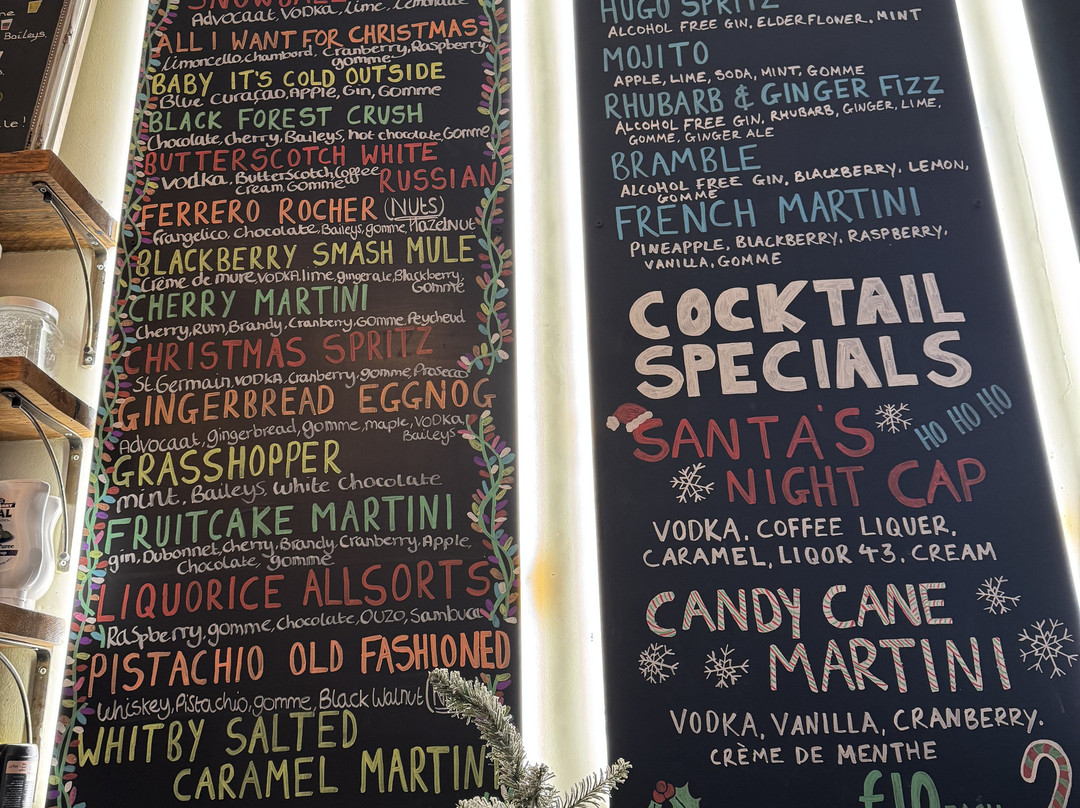 Baileys,
SNOWBALL
Advocaat, VODKA, Lime, Lemonade
ALL I WANT FOR CHRISTMAS
Limoncello, Chambord, Cranberry, Raspberry,
gomme
BABY IT'S COLD OUTSIDE
Blue Curaçao, Apple, Gin, Gomme
BLACK FOREST CRUSH
Chocolate, Cherry, Baileys, hot chocolate, Gomme
BUTTERSCOTCH WHITE
RUSSIAN
Vodka, Butterscotch, Coffee
Cream, Gomme
FERRERO ROCHER (NUTS)
Frangelico, Chocolate, Baileys, gomme, Hazelnut
BLACKBERRY SMASH MULE
Crème de mure, VODKA, lime, ginger ale, Blackberry,
Gomme
CHERRY MARTINI
Cherry, Rum, Brandy, Cranbery, Gomme, Peychaud
CHRISTMAS SPRITZ
St. Germain, VODKA, Cranberry, gomme, Prosecco
GINGERBREAD EGGNOG
Advocaat, gingerbread, gomme, maple, VODKA,
Baileys
GRASSHOPPER
mint, Baileys, White Chocolate
FRUITCAKE MARTINI
gin, Dubonnet, Cherry, Brandy, Cranberry, Apple,
Chocolate, gomme
LIQUORICE ALLSORTS
Raspberry, gomme, chocolate, OUZO, Sambuca
PISTACHIO OLD FASHIONED
Whiskey, Pistachio, gomme, Black Walnut
WHITBY SALTED
CARAMEL MARTINI
HUGO SPRITZ
ALCOHOL FREE GIN, ELDERFLOWER, MINT
MOJITO
APPLE, LIME, SODA, MINT, GOMME
RHUBARB & GINGER FIZZ
ALCOHOL FREE GIN, RHUBARB, GINGER, LIME,
GOMME, GINGER ALE
BRAMBLE
ALCOHOL FREE GIN, BLACKBERRY, LEMON,
GOMME
FRENCH MARTINI
PINEAPPLE, BLACKBERRY, RASPBERRY,
VANILLA, GOMME
COCKTAIL
SPECIALS
SANTA'S
NIGHT CAP
HO HO HO
VODKA, COFFEE LIQUER,
CARAMEL, LIQOR 43, CREAM
CANDY CANE
MARTINI
VODKA, VANILLA, CRANBERRY,
CRÈME DE MENTHE
£10